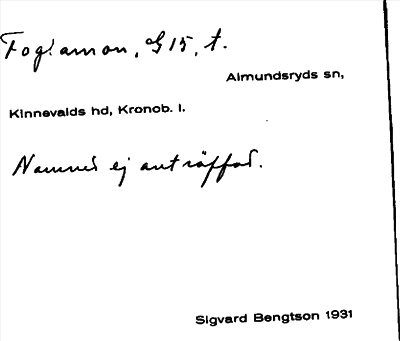 Foglamon, G 15, t.
Almundsryds sn,
Kinnevalds hd, Kronob. l.
Namnet ej anträffad.
Sigvard Bengtson 1931